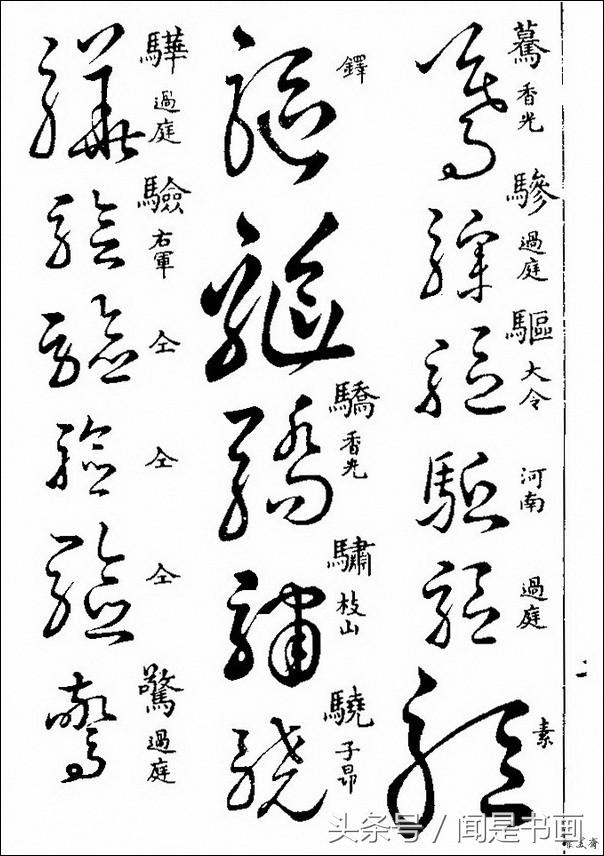 驀 香光
驂 過庭
驅 大令
河南
過庭
素
鐸
驕 香光
驌 枝山
驍 子昂
驊 過庭
驗 右軍
仝
仝
仝
驚 過庭
头条号 / 闻是书画